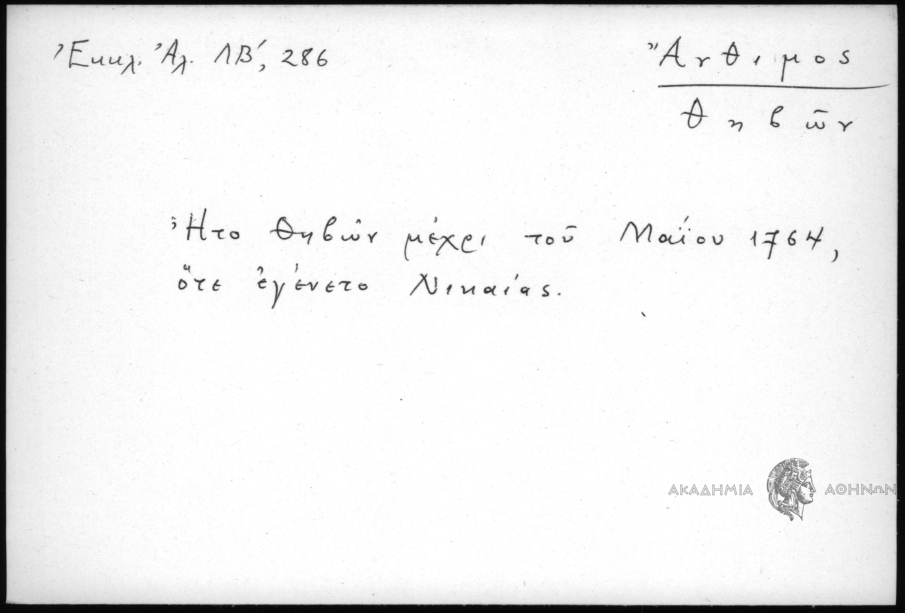 Ἐκκλ. Ἀλ. ΛΒ', 286
Ἄνθιμος
Θηβῶν
Ἦτο Θηβῶν μέχρι τοῦ Μαΐου 1764,
ὅτε ἐγένετο Νικαίας.
ΑΚΑΔΗΜΙΑ ΑΘΗΝΩΝ